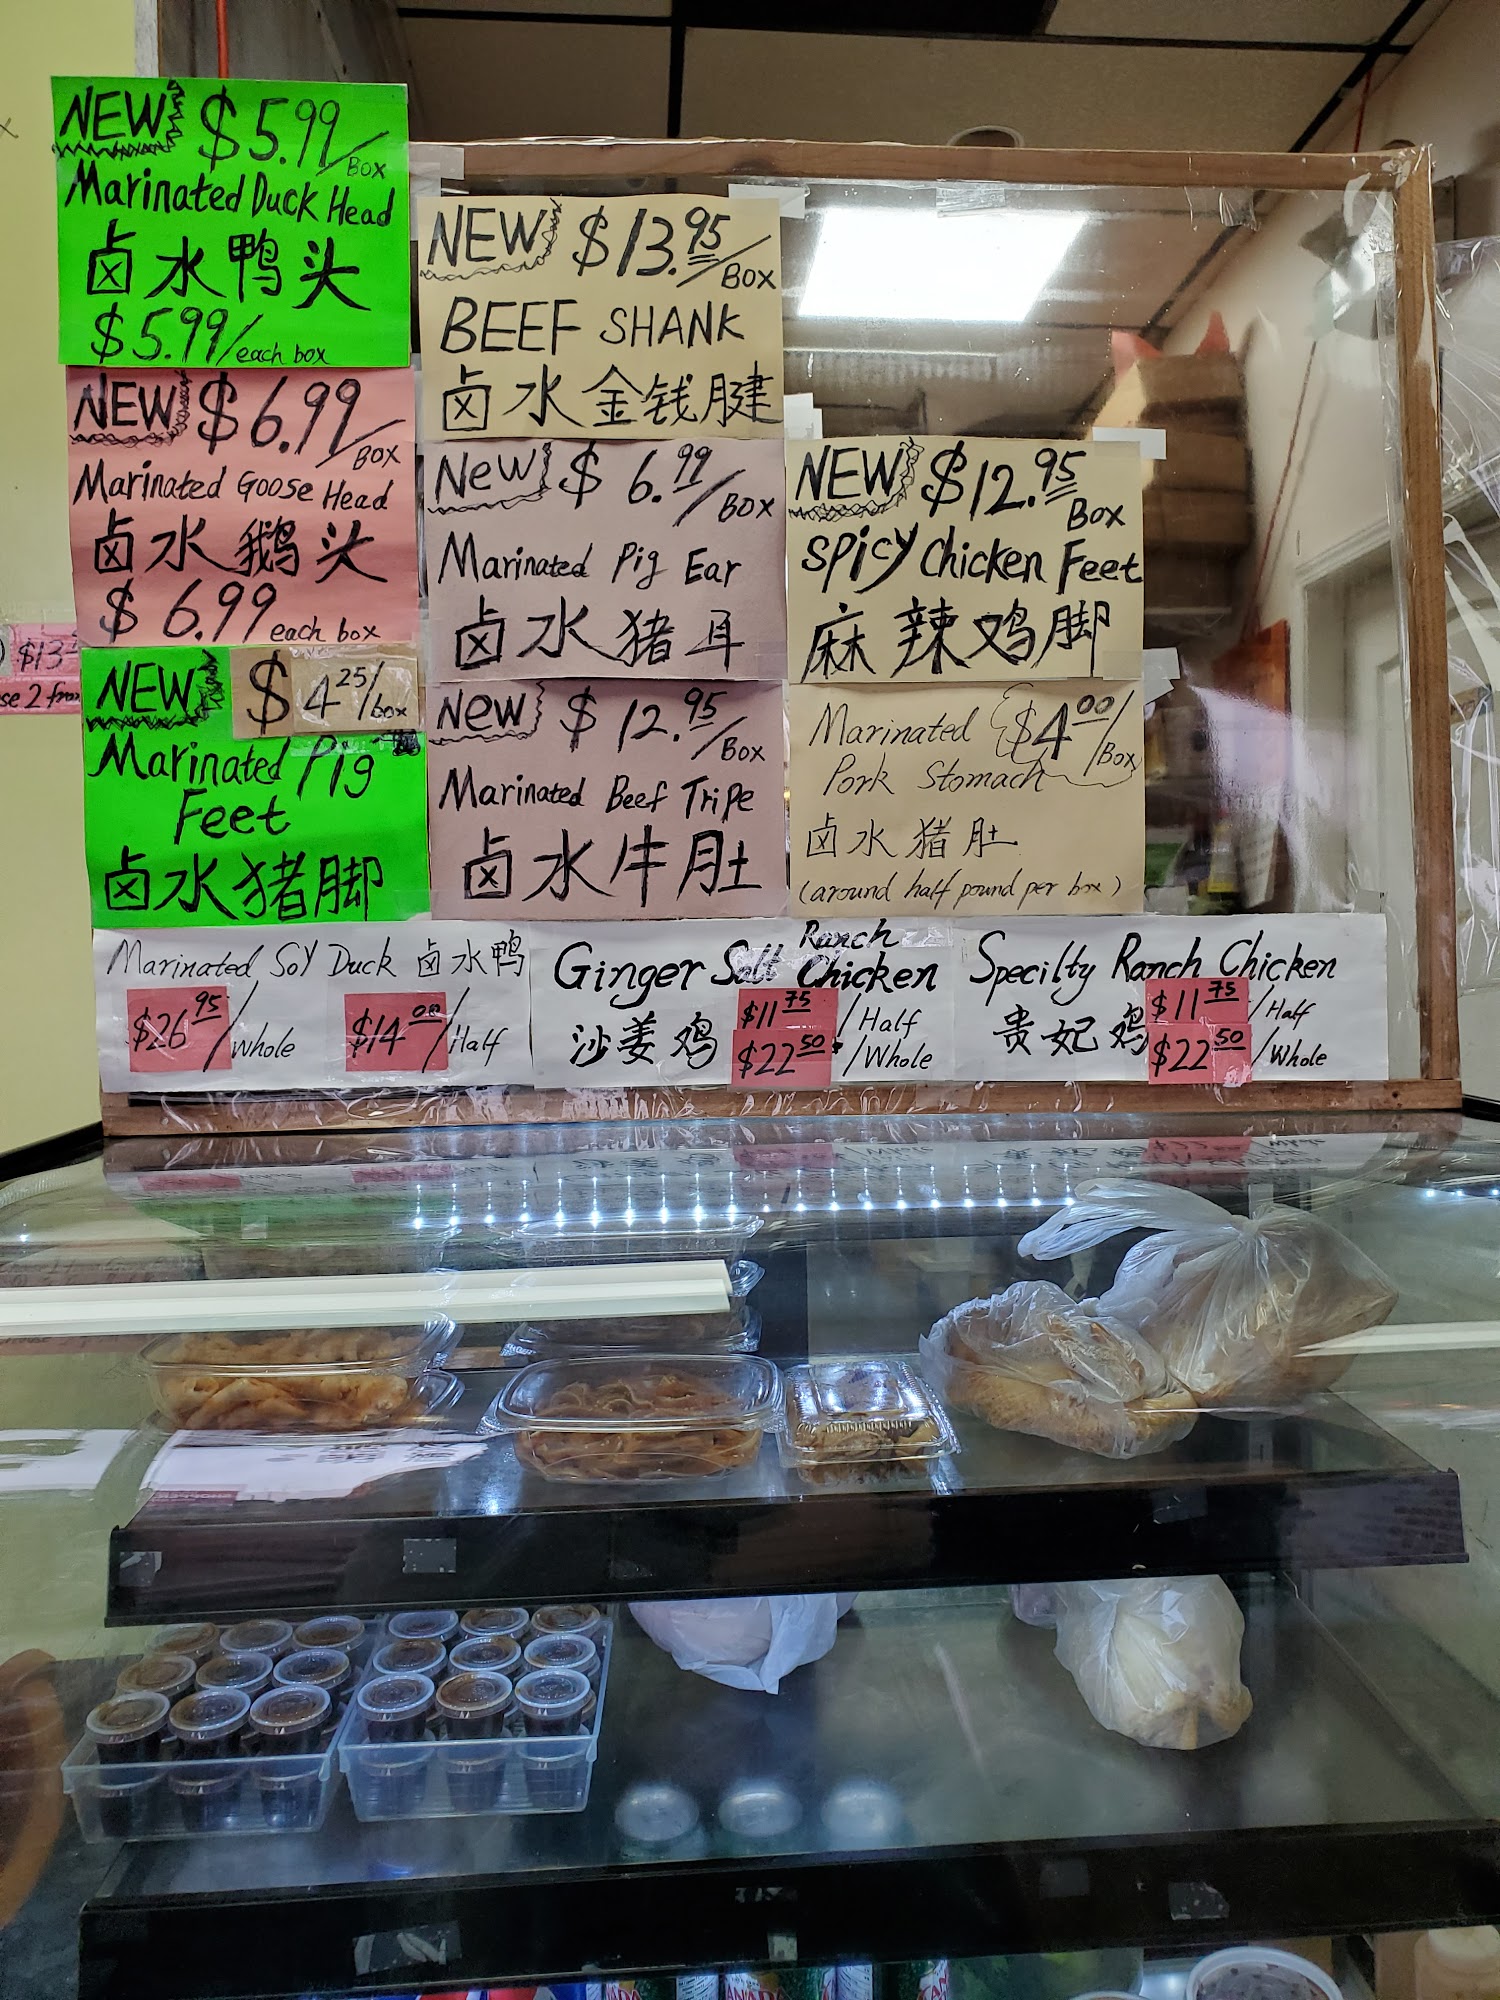 NEW $5.99/Box
Marinated Duck Head
卤水鸭头
$5.99/each box
NEW $6.99/Box
Marinated Goose Head
卤水鹅头
$6.99 each box
NEW $4.25/box
Marinated Pig
Feet
卤水猪脚
NEW $13.95/Box
BEEF SHANK
卤水金钱腱
New $6.99/Box
Marinated Pig Ear
卤水猪耳
New $12.95/Box
Marinated Beef Tripe
卤水牛肚
NEW $12.95
Box
Spicy Chicken Feet
麻辣鸡脚
Marinated $4.00/Box
Pork Stomach
卤水猪肚
(around half pound per box)
Marinated Soy Duck 卤水鸭
$26.95/Whole $14.00/Half
Ranch
Ginger Salt Chicken
沙姜鸡 $11.75/Half
$22.50/Whole
Specilty Ranch Chicken
贵妃鸡 $11.75/Half
$22.50/Whole
$13
2 from